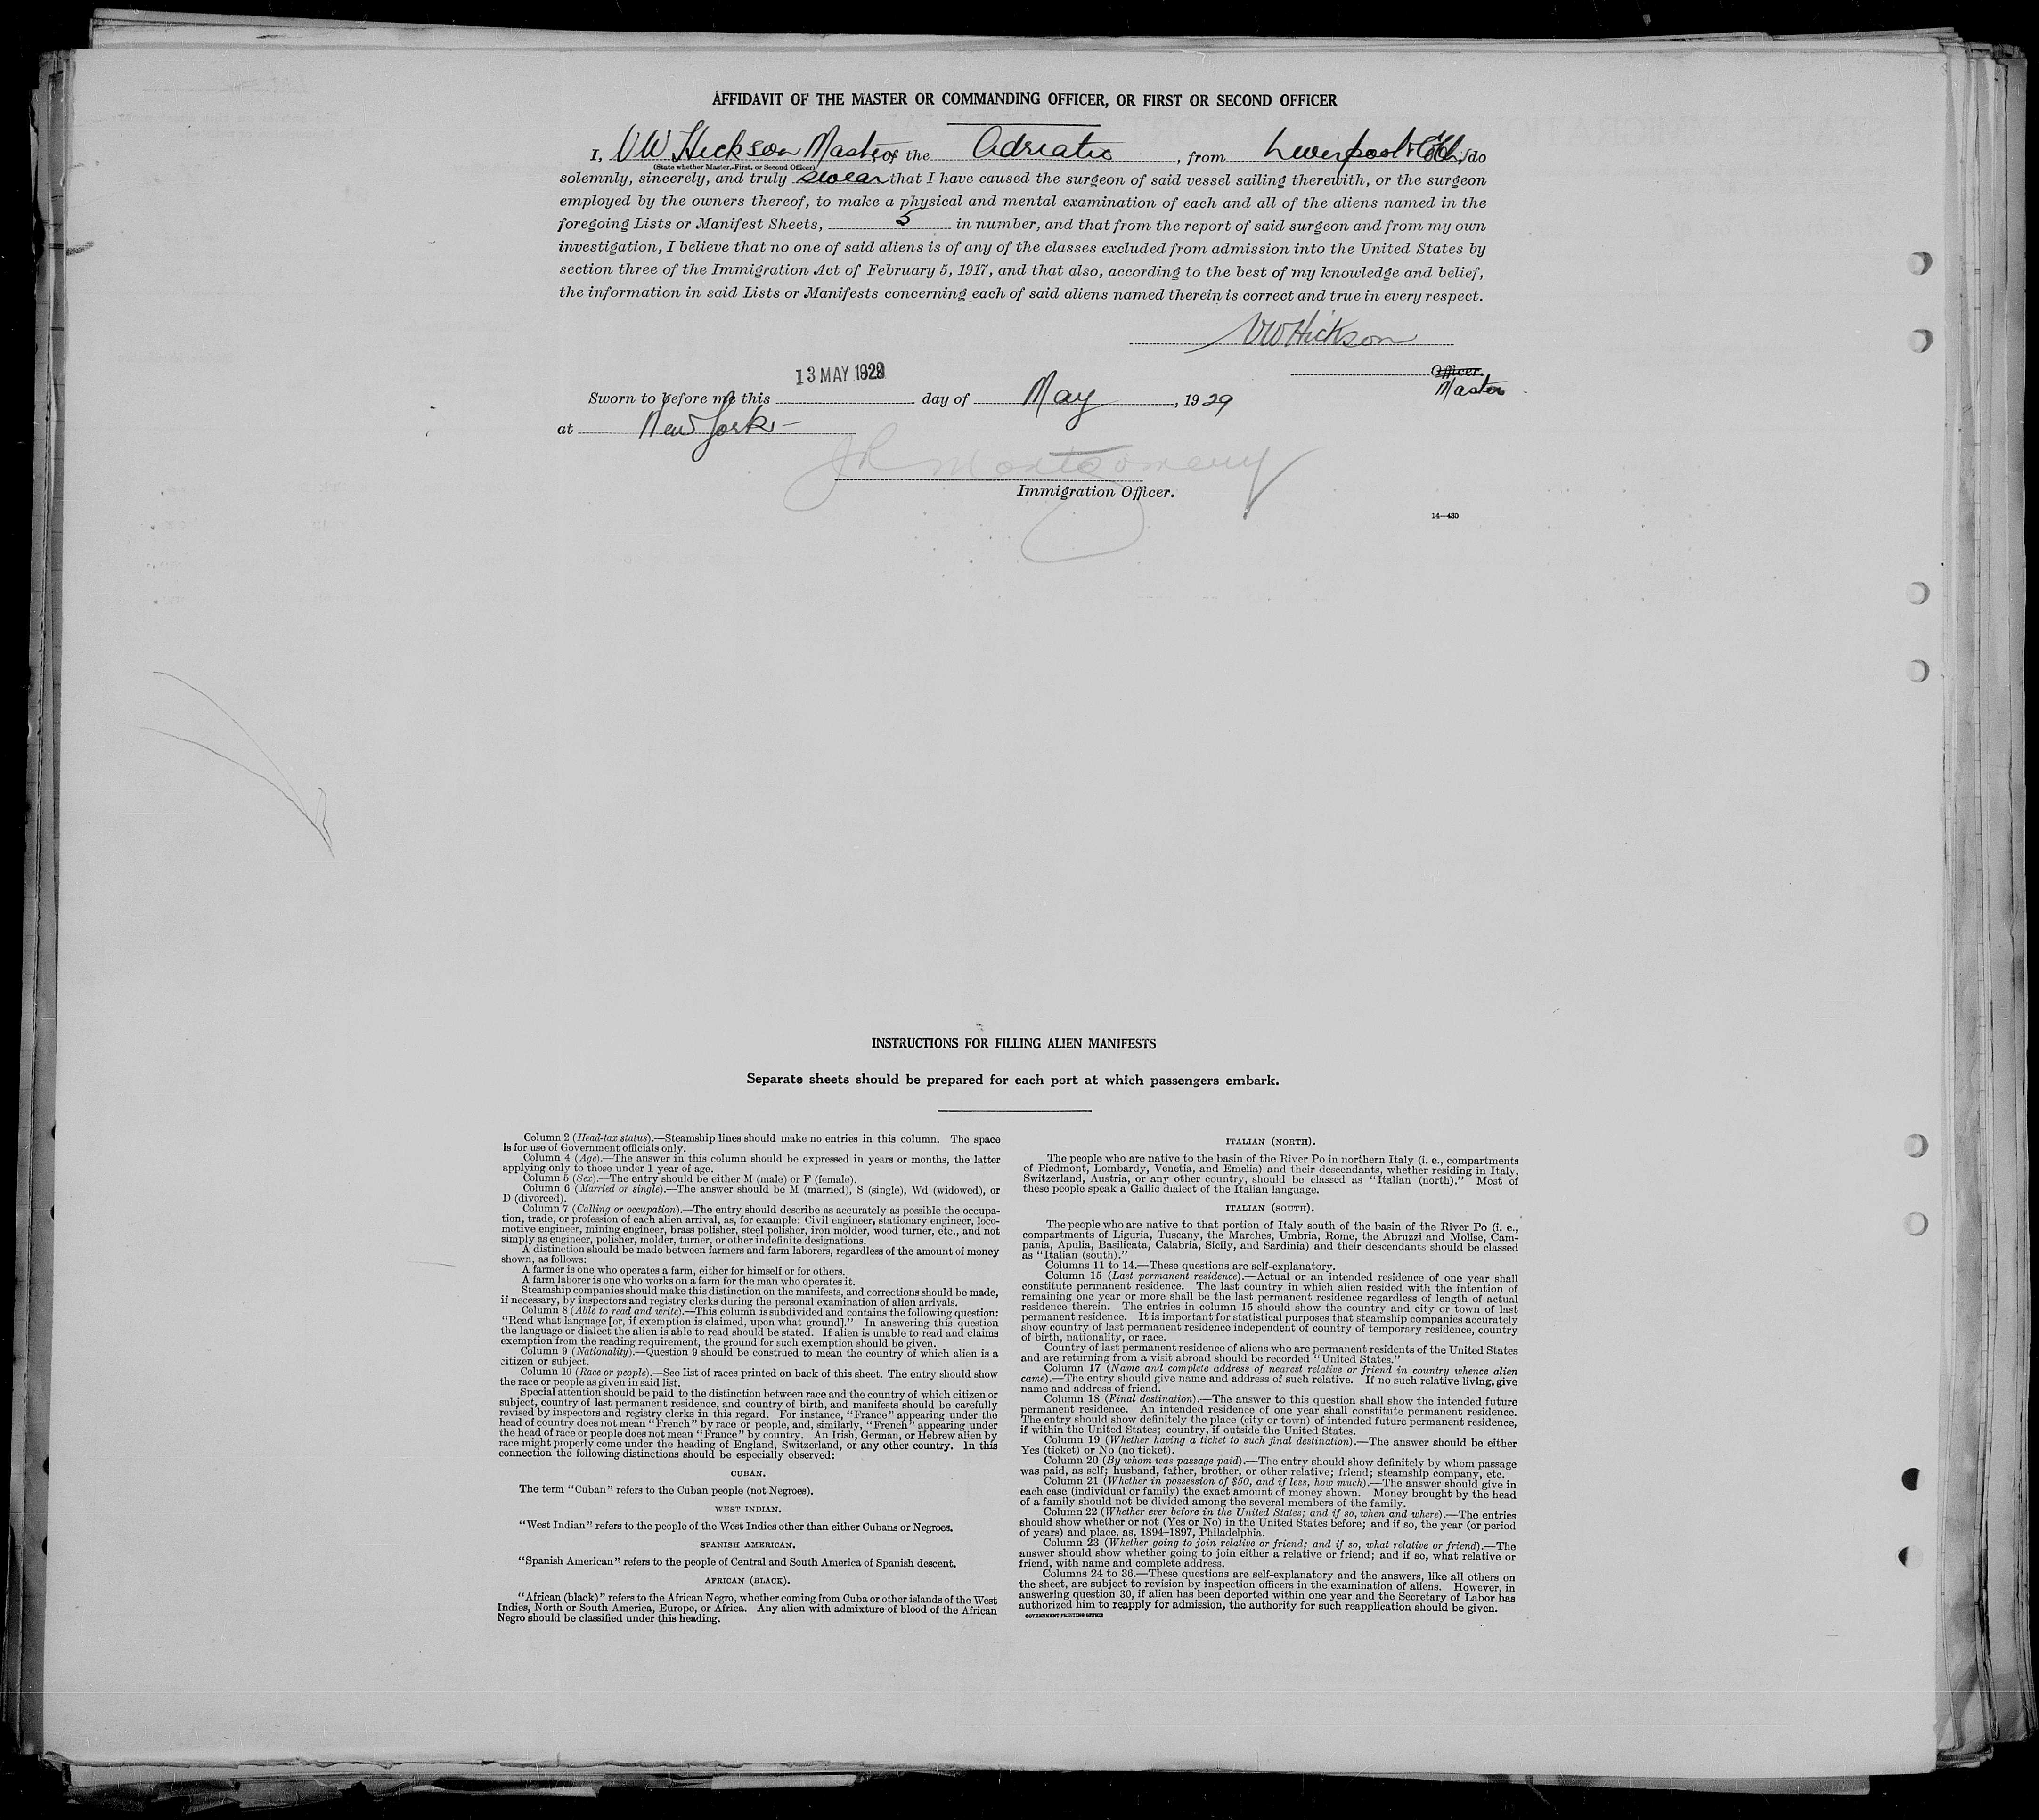 AFFIDAVIT OF THE MASTER OR COMMANDING OFFICER, OR FIRST OR SECOND OFFICER
I, VW Hickson Master of the Adriatic, from Liverpool & , do
(State whether Master, First, or Second Officer)
solemnly, sincerely, and truly swear that I have caused the surgeon of said vessel sailing therewith, or the surgeon
employed by the owners thereof, to make a physical and mental examination of each and all of the aliens named in the
foregoing Lists or Manifest Sheets, 5 in number, and that from the report of said surgeon and from my own
investigation, I believe that no one of said aliens is of any of the classes excluded from admission into the United States by
section three of the Immigration Act of February 5, 1917, and that also, according to the best of my knowledge and belief,
the information in said Lists or Manifests concerning each of said aliens named therein is correct and true in every respect.
VW Hickson
Officer.
Master
13 MAY 1929
Sworn to before me this day of May, 1929
at New York
JR Montgomery
Immigration Officer.
14—430
INSTRUCTIONS FOR FILLING ALIEN MANIFESTS
Separate sheets should be prepared for each port at which passengers embark.
Column 2 (Head-tax status).—Steamship lines should make no entries in this column. The space
is for use of Government officials only.
Column 4 (Age).—The answer in this column should be expressed in years or months, the latter
applying only to those under 1 year of age.
Column 5 (Sex).—The entry should be either M (male) or F (female).
Column 6 (Married or single).—The answer should be M (married), S (single), Wd (widowed), or
D (divorced).
Column 7 (Calling or occupation).—The entry should describe as accurately as possible the occupa-
tion, trade, or profession of each alien arrival, as, for example: Civil engineer, stationary engineer, loco-
motive engineer, mining engineer, brass polisher, steel polisher, iron molder, wood turner, etc., and not
simply as engineer, polisher, molder, turner, or other indefinite designations.
A distinction should be made between farmers and farm laborers, regardless of the amount of money
shown, as follows:
A farmer is one who operates a farm, either for himself or for others.
A farm laborer is one who works on a farm for the man who operates it.
Steamship companies should make this distinction on the manifests, and corrections should be made,
if necessary, by inspectors and registry clerks during the personal examination of alien arrivals.
Column 8 (Able to read and write).—This column is subdivided and contains the following question:
"Read what language [or, if exemption is claimed, upon what ground]." In answering this question
the language or dialect the alien is able to read should be stated. If alien is unable to read and claims
exemption from the reading requirement, the ground for such exemption should be given.
Column 9 (Nationality).—Question 9 should be construed to mean the country of which alien is a
citizen or subject.
Column 10 (Race or people).—See list of races printed on back of this sheet. The entry should show
the race or people as given in said list.
Special attention should be paid to the distinction between race and the country of which citizen or
subject, country of last permanent residence, and country of birth, and manifests should be carefully
revised by inspectors and registry clerks in this regard. For instance, "France" appearing under the
head of country does not mean "French" by race or people, and, similarly, "French" appearing under
the head of race or people does not mean "France" by country. An Irish, German, or Hebrew alien by
race might properly come under the heading of England, Switzerland, or any other country. In this
connection the following distinctions should be especially observed:
CUBAN.
The term "Cuban" refers to the Cuban people (not Negroes).
WEST INDIAN.
"West Indian" refers to the people of the West Indies other than either Cubans or Negroes.
SPANISH AMERICAN.
"Spanish American" refers to the people of Central and South America of Spanish descent.
AFRICAN (BLACK).
"African (black)" refers to the African Negro, whether coming from Cuba or other islands of the West
Indies, North or South America, Europe, or Africa. Any alien with admixture of blood of the African
Negro should be classified under this heading.
ITALIAN (NORTH).
The people who are native to the basin of the River Po in northern Italy (i. e., compartments
of Piedmont, Lombardy, Venetia, and Emelia) and their descendants, whether residing in Italy,
Switzerland, Austria, or any other country, should be classed as "Italian (north)." Most of
these people speak a Gallic dialect of the Italian language.
ITALIAN (SOUTH).
The people who are native to that portion of Italy south of the basin of the River Po (i. e.,
compartments of Liguria, Tuscany, the Marches, Umbria, Rome, the Abruzzi and Molise, Cam-
pania, Apulia, Basilicata, Calabria, Sicily, and Sardinia) and their descendants should be classed
as "Italian (south)."
Columns 11 to 14.—These questions are self-explanatory.
Column 15 (Last permanent residence).—Actual or an intended residence of one year shall
constitute permanent residence. The last country in which alien resided with the intention of
remaining one year or more shall be the last permanent residence regardless of length of actual
residence therein. The entries in column 15 should show the country and city or town of last
permanent residence. It is important for statistical purposes that steamship companies accurately
show country of last permanent residence independent of country of temporary residence, country
of birth, nationality, or race.
Country of last permanent residence of aliens who are permanent residents of the United States
and are returning from a visit abroad should be recorded "United States."
Column 17 (Name and complete address of nearest relative or friend in country whence alien
came).—The entry should give name and address of such relative. If no such relative living, give
name and address of friend.
Column 18 (Final destination).—The answer to this question shall show the intended future
permanent residence. An intended residence of one year shall constitute permanent residence.
The entry should show definitely the place (city or town) of intended future permanent residence,
if within the United States; country, if outside the United States.
Column 19 (Whether having a ticket to such final destination).—The answer should be either
Yes (ticket) or No (no ticket).
Column 20 (By whom was passage paid).—The entry should show definitely by whom passage
was paid, as self; husband, father, brother, or other relative; friend; steamship company, etc.
Column 21 (Whether in possession of $50, and if less, how much).—The answer should give in
each case (individual or family) the exact amount of money shown. Money brought by the head
of a family should not be divided among the several members of the family.
Column 22 (Whether ever before in the United States; and if so, when and where).—The entries
should show whether or not (Yes or No) in the United States before; and if so, the year (or period
of years) and place, as, 1894–1897, Philadelphia.
Column 23 (Whether going to join relative or friend; and if so, what relative or friend).—The
answer should show whether going to join either a relative or friend; and if so, what relative or
friend, with name and complete address.
Columns 24 to 36.—These questions are self-explanatory and the answers, like all others on
the sheet, are subject to revision by inspection officers in the examination of aliens. However, in
answering question 30, if alien has been deported within one year and the Secretary of Labor has
authorized him to reapply for admission, the authority for such reapplication should be given.
GOVERNMENT PRINTING OFFICE